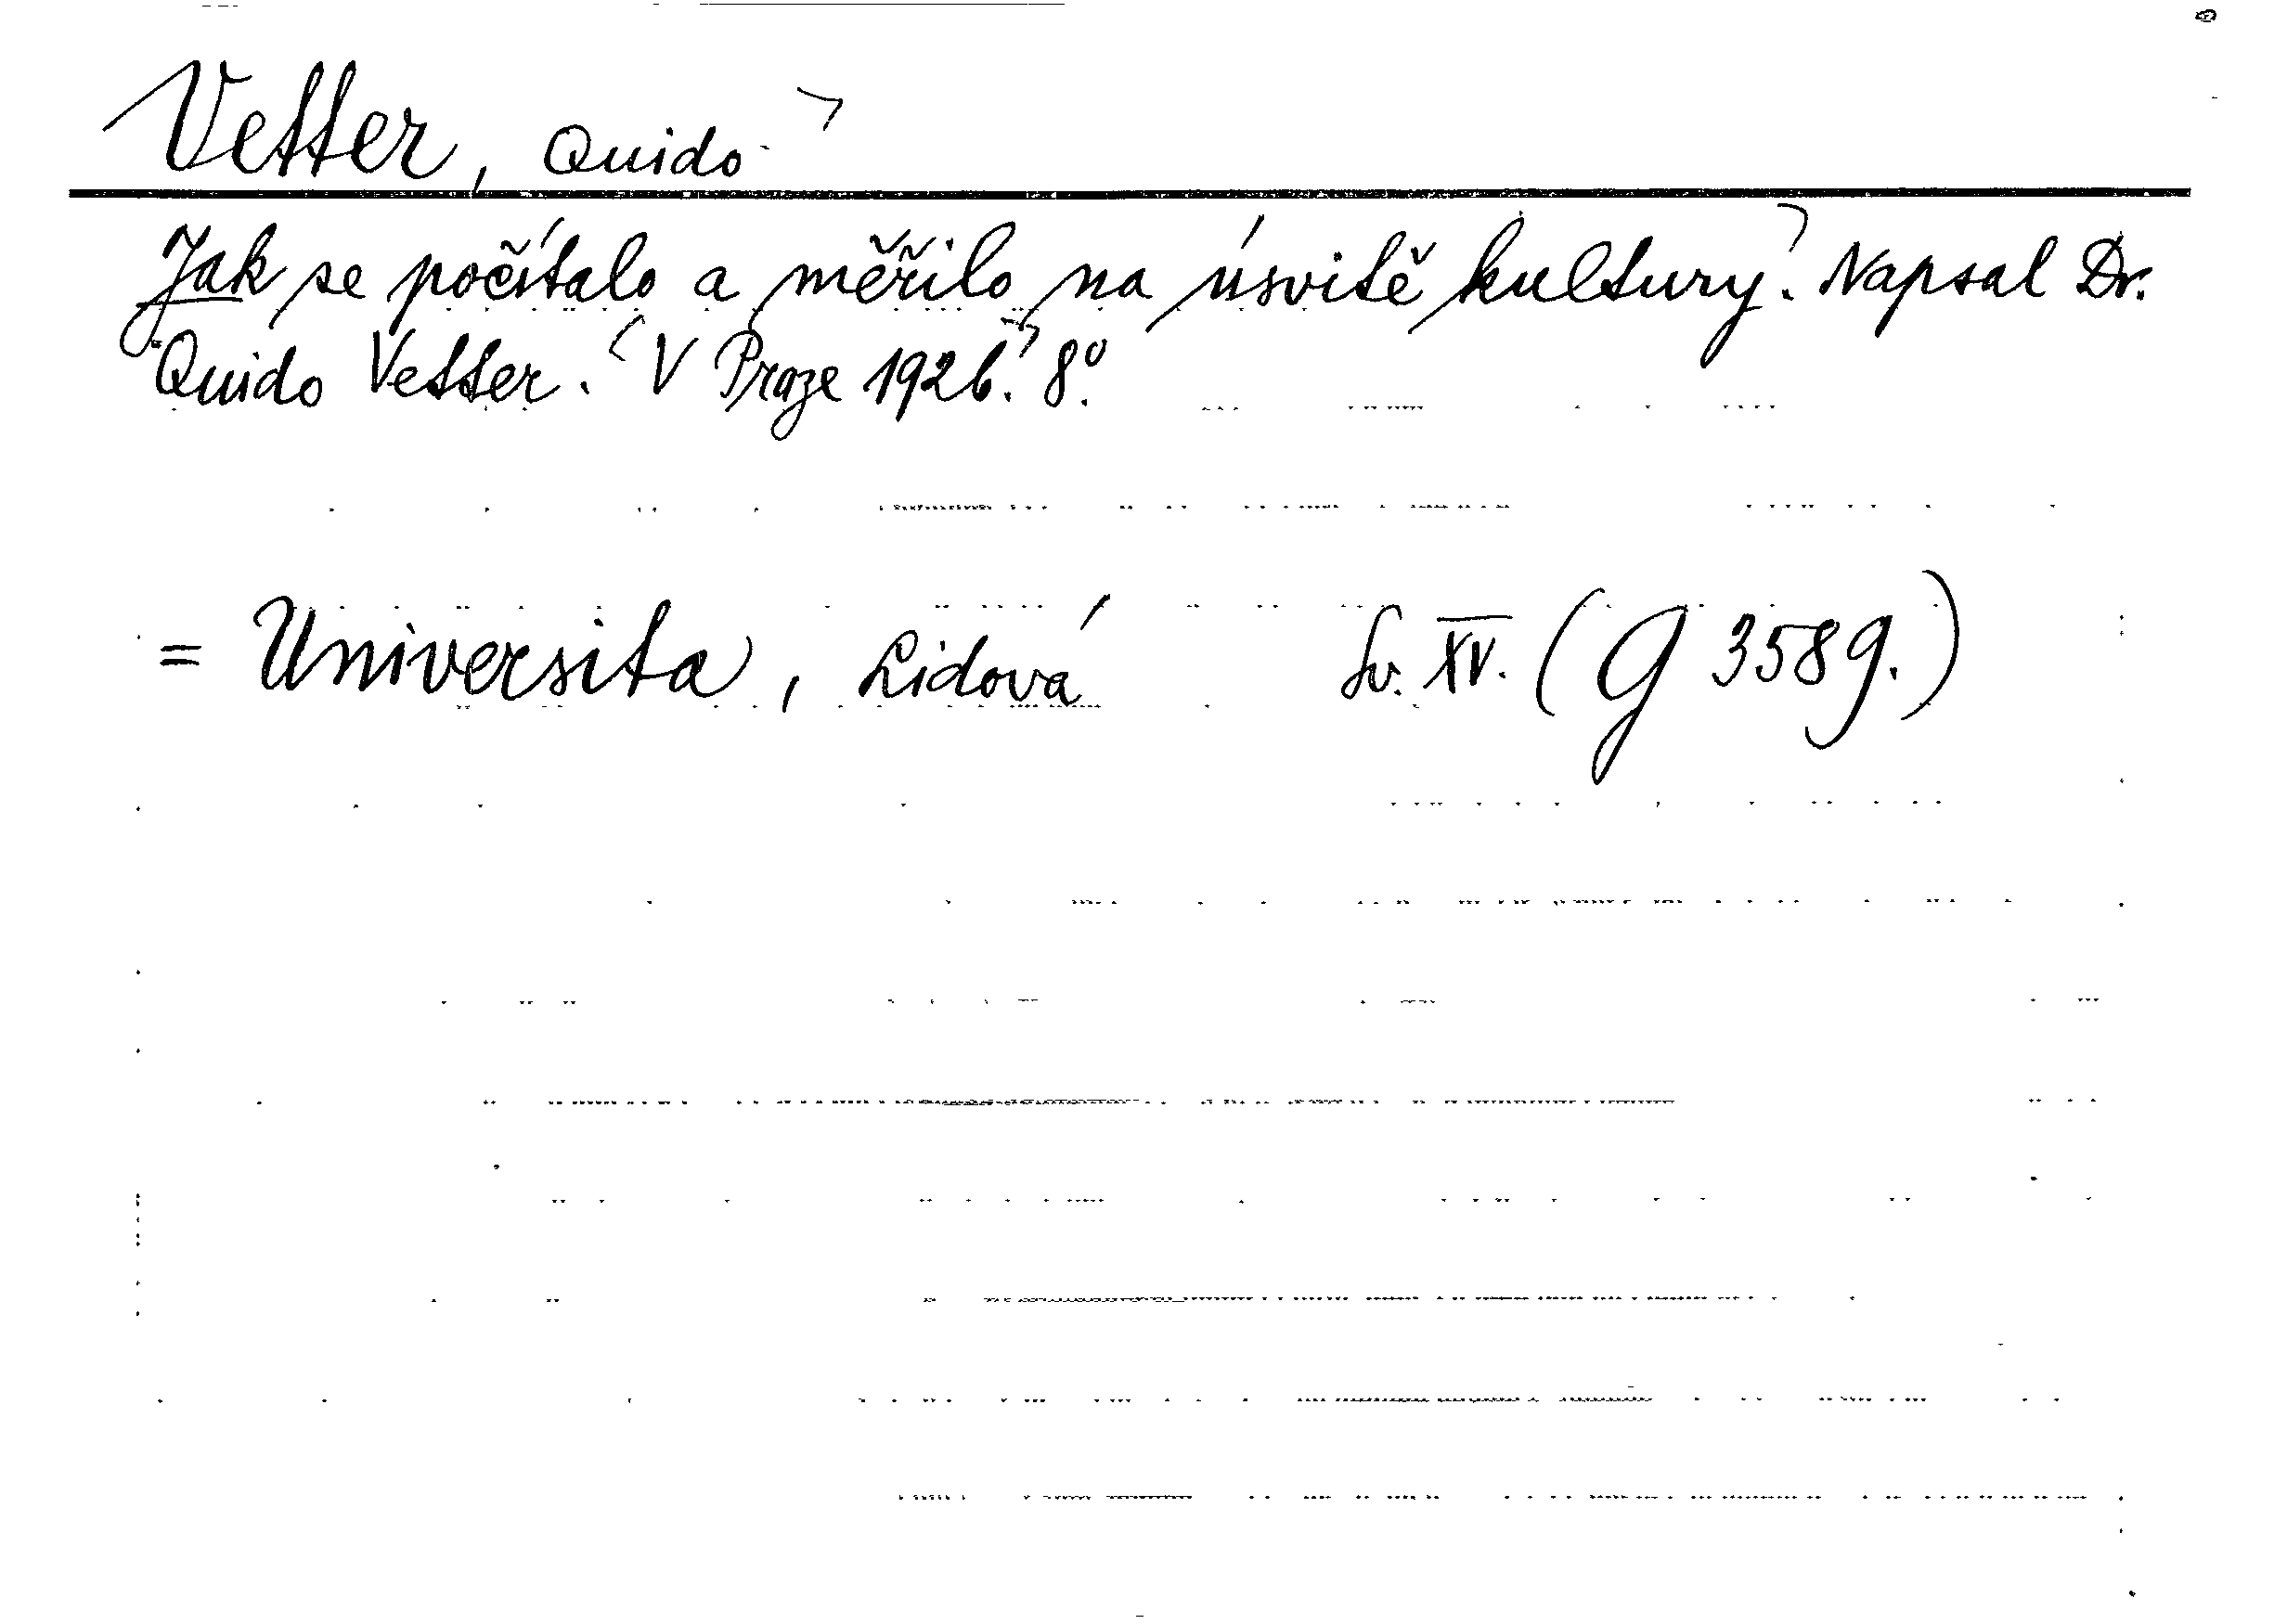 Vetter, Quido
Jak se počítalo a měřilo na úsvitě kultury. Napsal Dr.
Quido Vetter. V Praze 1926. 8º.
= Universita, Lidová Sv. XV. (G 3589.)